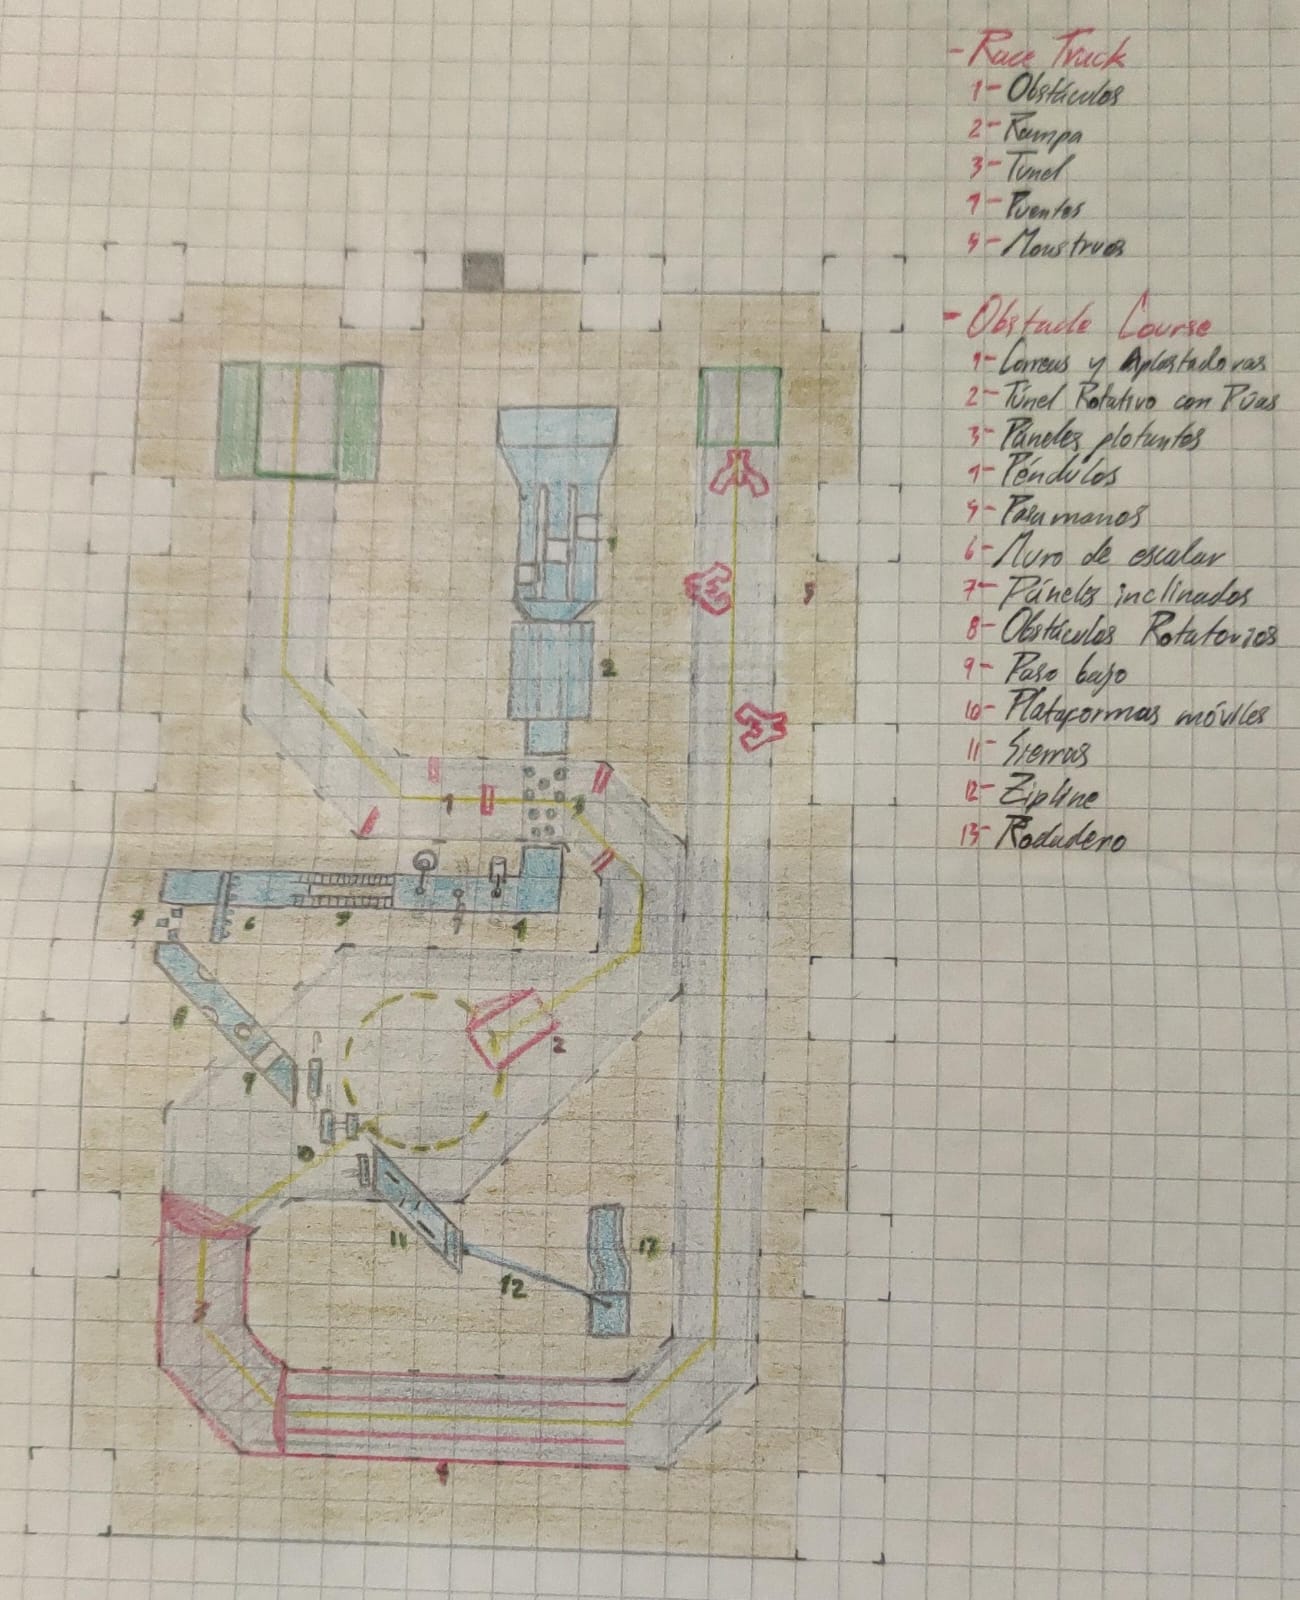 - Race Track
1- Obstáculos
2- Rampa
3- Túnel
4- Puentes
5- Monstruos
- Obstacle Course
1- Correas y Aplastadoras
2- Túnel Rotativo con Púas
3- Páneles flotantes
4- Péndulos
5- Pasamanos
6- Muro de escalar
7- Páneles inclinados
8- Obstáculos Rotatorios
9- Paso bajo
10- Plataformas móviles
11- Sierras
12- Zipline
13- Rodadero
1
5
2
1
3
7
6
5
4
8
2
9
10
11
13
12
3
4